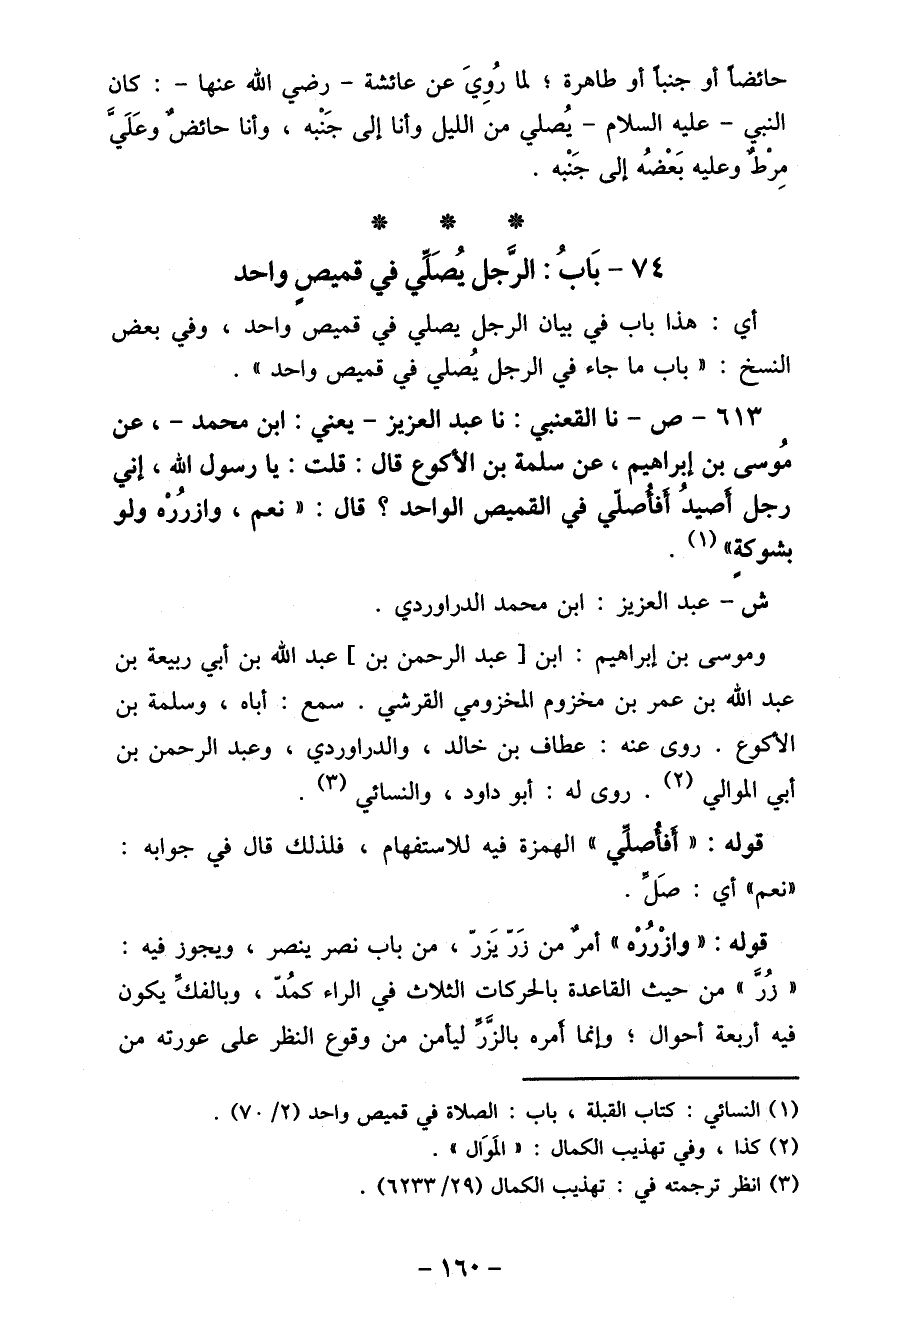 حائضاً أو جنباً أو طاهرة ؛ لما رُوِيَ عن عائشة – رضي الله عنها – : كان
النبي – عليه السلام – يُصلي من الليل وأنا إلى جَنْبه ، وأنا حائضٌ وعَلَيَّ
مِرْطٌ وعليه بَعْضُه إلى جَنْبه .
* * *
٧٤ – بَابُ : الرَّجل يُصَلِّي في قميصٍ واحد
أي : هذا باب في بيان الرجل يصلي في قميص واحد ، وفي بعض
النسخ : « باب ما جاء في الرجل يُصلي في قميص واحد » .
٦١٣ – ص – نا القعنبي : نا عبد العزيز – يعني : ابن محمد – ، عن
مُوسى بن إبراهيم ، عن سلمة بن الأكوع قال : قلت : يا رسول الله ، إني
رجل أَصيدُ أَفأُصلّي في القميص الواحد ؟ قال : « نعم ، وازررُهْ ولو
بشوكةٍ» (١) .
ش – عبد العزيز : ابن محمد الدراوردي .
وموسى بن إبراهيم : ابن [ عبد الرحمن بن ] عبد الله بن أبي ربيعة بن
عبد الله بن عمر بن مخزوم المخزومي القرشي . سمع : أباه ، وسلمة بن
الأكوع . روى عنه : عطاف بن خالد ، والدراوردي ، وعبد الرحمن بن
أبي الموالي (٢) . روى له : أبو داود ، والنسائي (٣) .
قوله : « أَفأُصلِّي » الهمزة فيه للاستفهام ، فلذلك قال في جوابه :
«نعم» أي : صَلِّ .
قوله : « وازْرُرْه » أمرٌ من زَرّ يَزرّ ، من باب نصر ينصر ، ويجوز فيه :
« زُرَّ » من حيث القاعدة بالحركات الثلاث في الراء كمُدّ ، وبالفكِّ يكون
فيه أربعة أحوال ؛ وإنما أَمره بالزَّرِّ ليأمن من وقوع النظر على عورته من
(١) النسائي : كتاب القبلة ، باب : الصلاة في قميص واحد (٢/ ٧٠) .
(٢) كذا ، وفي تهذيب الكمال : « المَوَال » .
(٣) انظر ترجمته في : تهذيب الكمال (٢٩/ ٦٢٣٣) .
– ١٦٠ –